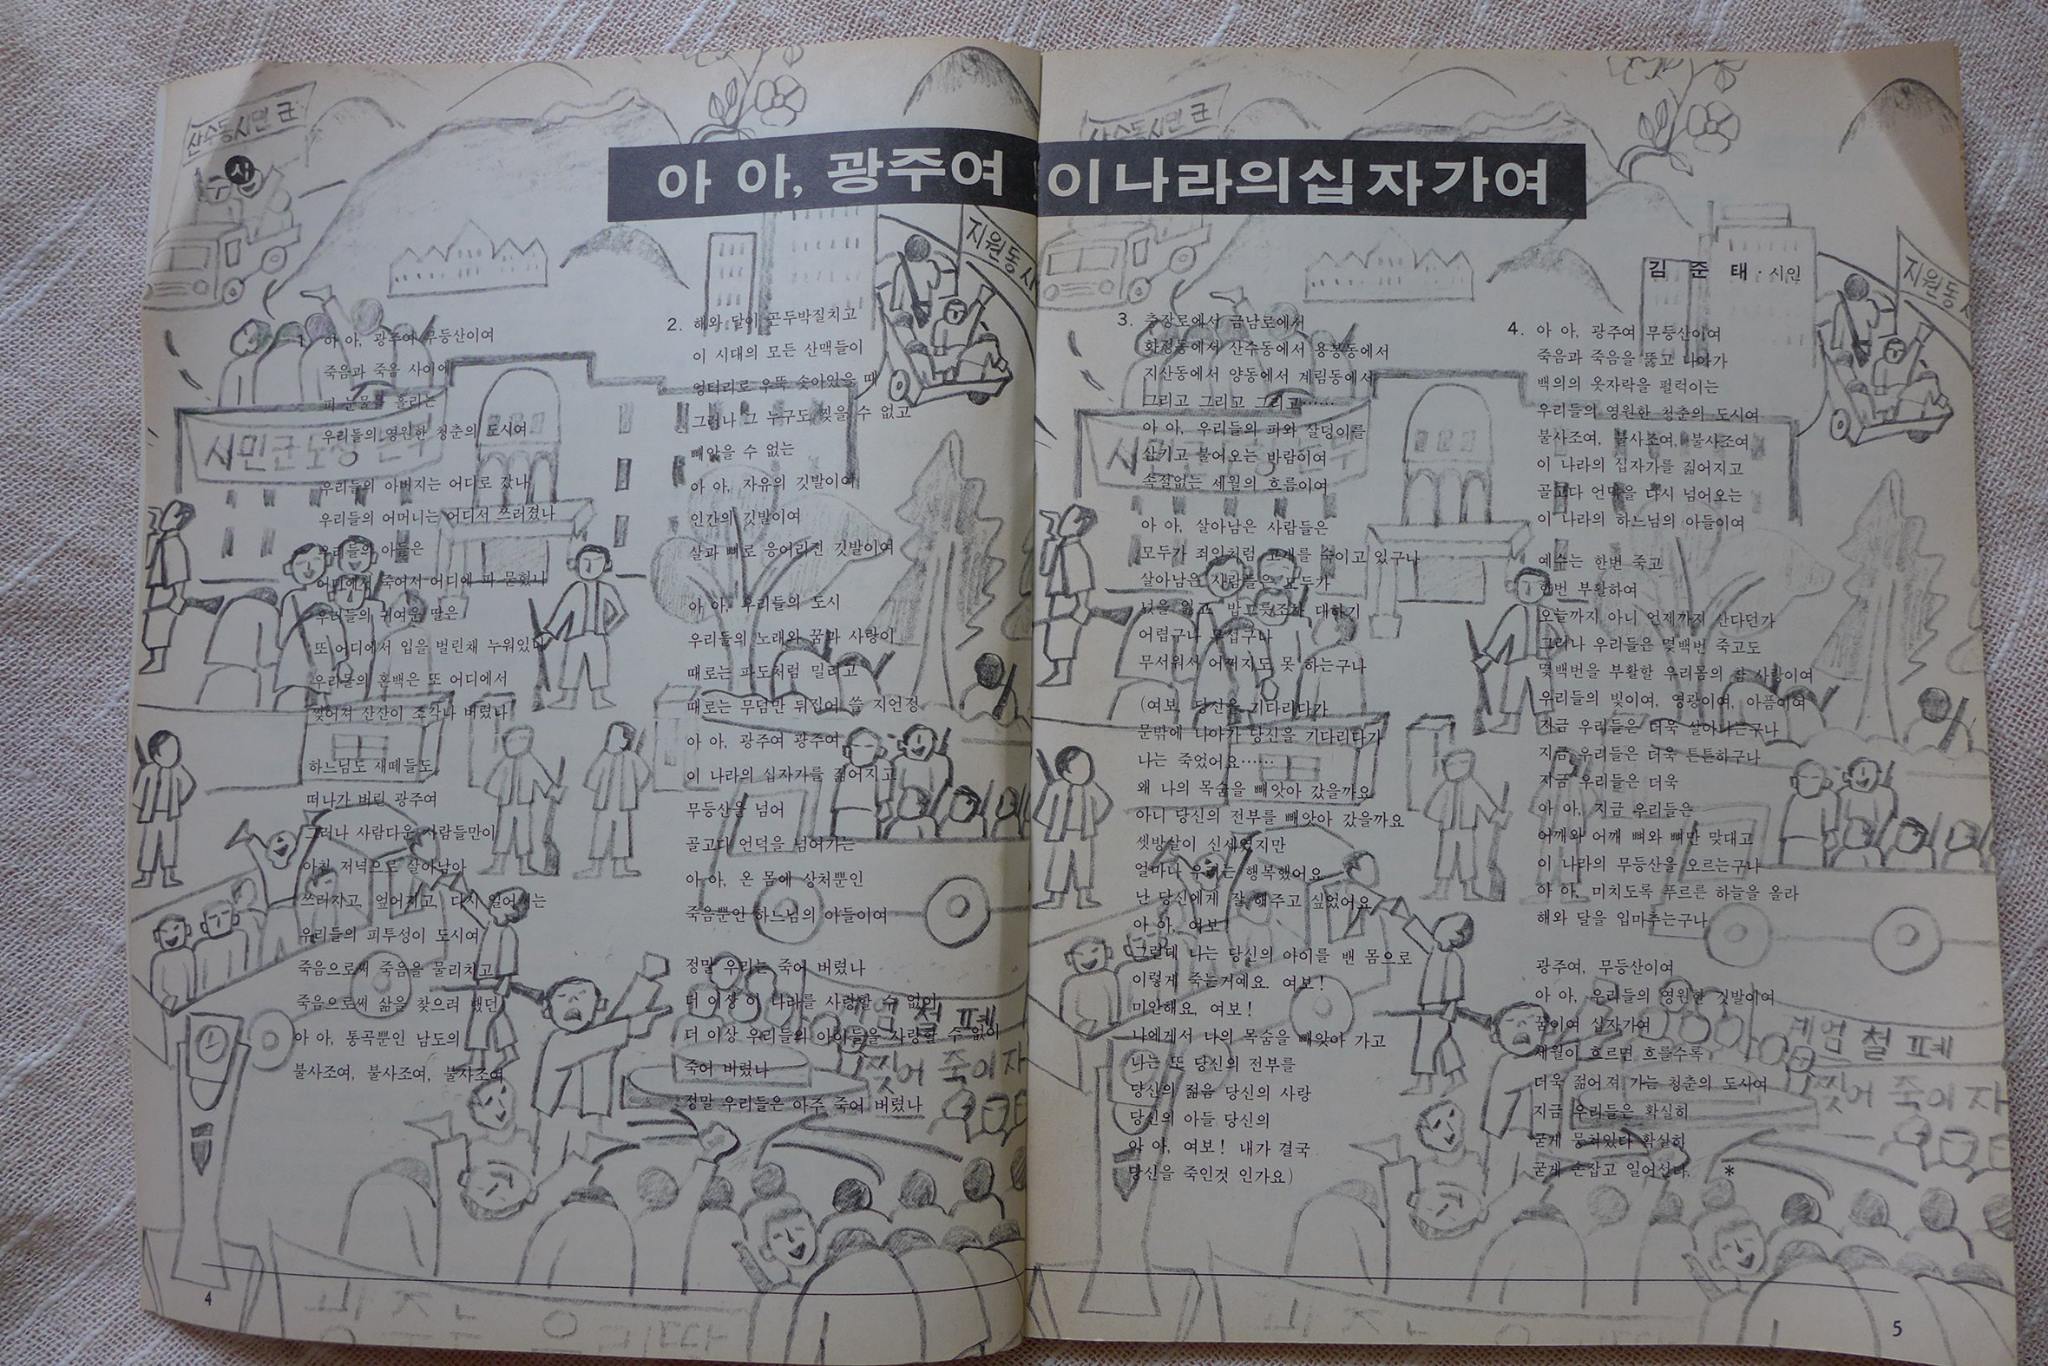 아 아, 광주여! 이나라의십자가여
김 준 태·시인
산수동시민군
시
지원동 시
시민군도청본부
1. 아 아, 광주여 무등산이여
죽음과 죽음 사이에
피 눈물을 흘리는
우리들의 영원한 청춘의 도시여
우리들의 아버지는 어디로 갔나
우리들의 어머니는 어디서 쓰러졌나
우리들의 아들은
어디에서 죽어서 어디에 파 묻혔나
우리들의 귀여운 딸은
또 어디에서 입을 벌린채 누워있나
우리들의 혼백은 또 어디에서
찢어져 산산이 조각나 버렸나
하느님도 새떼들도
떠나가 버린 광주여
그러나 사람다운 사람들만이
아침 저녁으로 살아남아
쓰러지고, 엎어지고, 다시 일어서는
우리들의 피투성이 도시여
죽음으로써 죽음을 물리치고
죽음으로써 삶을 찾으려 했던
아 아, 통곡뿐인 남도의
불사조여, 불사조여, 불사조여
2. 해와 달이 곤두박질치고
이 시대의 모든 산맥들이
엉터리로 우뚝 솟아있을 때
그러나 그 누구도 찢을 수 없고
빼앗을 수 없는
아 아, 자유의 깃발이여
인간의 깃발이여
살과 뼈로 응어리진 깃발이여
아 아, 우리들의 도시
우리들의 노래와 꿈과 사랑이
때로는 파도처럼 밀리고
때로는 무덤만 뒤집어 쓸 지언정
아 아, 광주여 광주여
이 나라의 십자가를 짊어지고
무등산을 넘어
골고다 언덕을 넘어가는
아 아, 온 몸에 상처뿐인
죽음뿐인 하느님의 아들이여
정말 우리는 죽어 버렸나
더 이상 이 나라를 사랑할 수 없이
더 이상 우리들의 아이들을 사랑할 수 없이
죽어 버렸나
정말 우리들은 아주 죽어 버렸나
철 폐
찢어 죽이자
4
3. 충장로에서 금남로에서
화정동에서 산수동에서 용봉동에서
지산동에서 양동에서 계림동에서
그리고 그리고 그리고……
아 아, 우리들의 피와 살덩이를
삼키고 불어오는 바람이여
속절없는 세월의 흐름이여
아 아, 살아남은 사람들은
모두가 죄인처럼 고개를 숙이고 있구나
살아남은 사람들은 모두가
넋을 잃고 밥그릇조차 대하기
어렵구나 무섭구나
무서워서 어쩌지도 못 하는구나
(여보, 당신을 기다리다가
문밖에 나아가 당신을 기다리다가
나는 죽었어요……
왜 나의 목숨을 빼앗아 갔을까요
아니 당신의 전부를 빼앗아 갔을까요
셋방살이 신세였지만
얼마나 우리는 행복했어요
난 당신에게 잘 해주고 싶었어요
아 아, 여보!
그런데 나는 당신의 아이를 밴 몸으로
이렇게 죽는거예요 여보!
미안해요, 여보!
나에게서 나의 목숨을 빼앗아 가고
나는 또 당신의 전부를
당신의 젊음 당신의 사랑
당신의 아들 당신의
아 아, 여보! 내가 결국
당신을 죽인것 인가요)
4. 아 아, 광주여 무등산이여
죽음과 죽음을 뚫고 나아가
백의의 옷자락을 펄럭이는
우리들의 영원한 청춘의 도시여
불사조여, 불사조여, 불사조여
이 나라의 십자가를 짊어지고
골고다 언덕을 다시 넘어오는
이 나라의 하느님의 아들이여
예수는 한번 죽고
한번 부활하여
오늘까지 아니 언제까지 산다던가
그러나 우리들은 몇백번 죽고도
몇백번을 부활할 우리몸의 참 사랑이여
우리들의 빛이여, 영광이여, 아픔이여
지금 우리들은 더욱 살아나는구나
지금 우리들은 더욱 튼튼하구나
지금 우리들은 더욱
아 아, 지금 우리들은
어깨와 어깨 뼈와 뼈만 맞대고
이 나라의 무등산을 오르는구나
아 아, 미치도록 푸르른 하늘을 올라
해와 달을 입마추는구나
광주여, 무등산이여
아 아, 우리들의 영원한 깃발이여
꿈이여 십자가여
세월이 흐르면 흐를수록
더욱 젊어 져 가는 청춘의 도시여
지금 우리들은 확실히
굳게 뭉쳐있다 확실히
굳게 손잡고 일어선다. *
산수동시민군
지원동 시
계엄 철 폐
찢어 죽이자
5